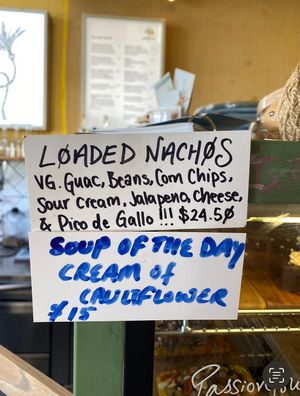 LØADED NACHØS
VG. Guac, Beans, Corn Chips,
Sour Cream, Jalapeno, Cheese,
& Pico de Gallo !!! $24.50
SOUP OF THE DAY
CREAM of
CAULIFLOWER
$15
Passion